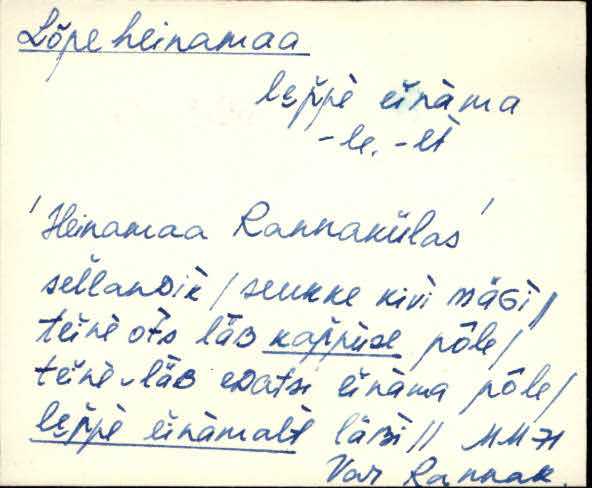 Lõpe heinamaa
lep̆pè ĕinàma
-le. -lt̀
'Heinamaa Rannakülas'
sĕllanDik / seukke kivi mäGi //
tĕinè ot̀s läB kap̆puse põle /
tĕinè läB eDatsı ĕinàma põle /
lep̆pè ĕinàmalt̀ läBi // MM71
Var Rannak.